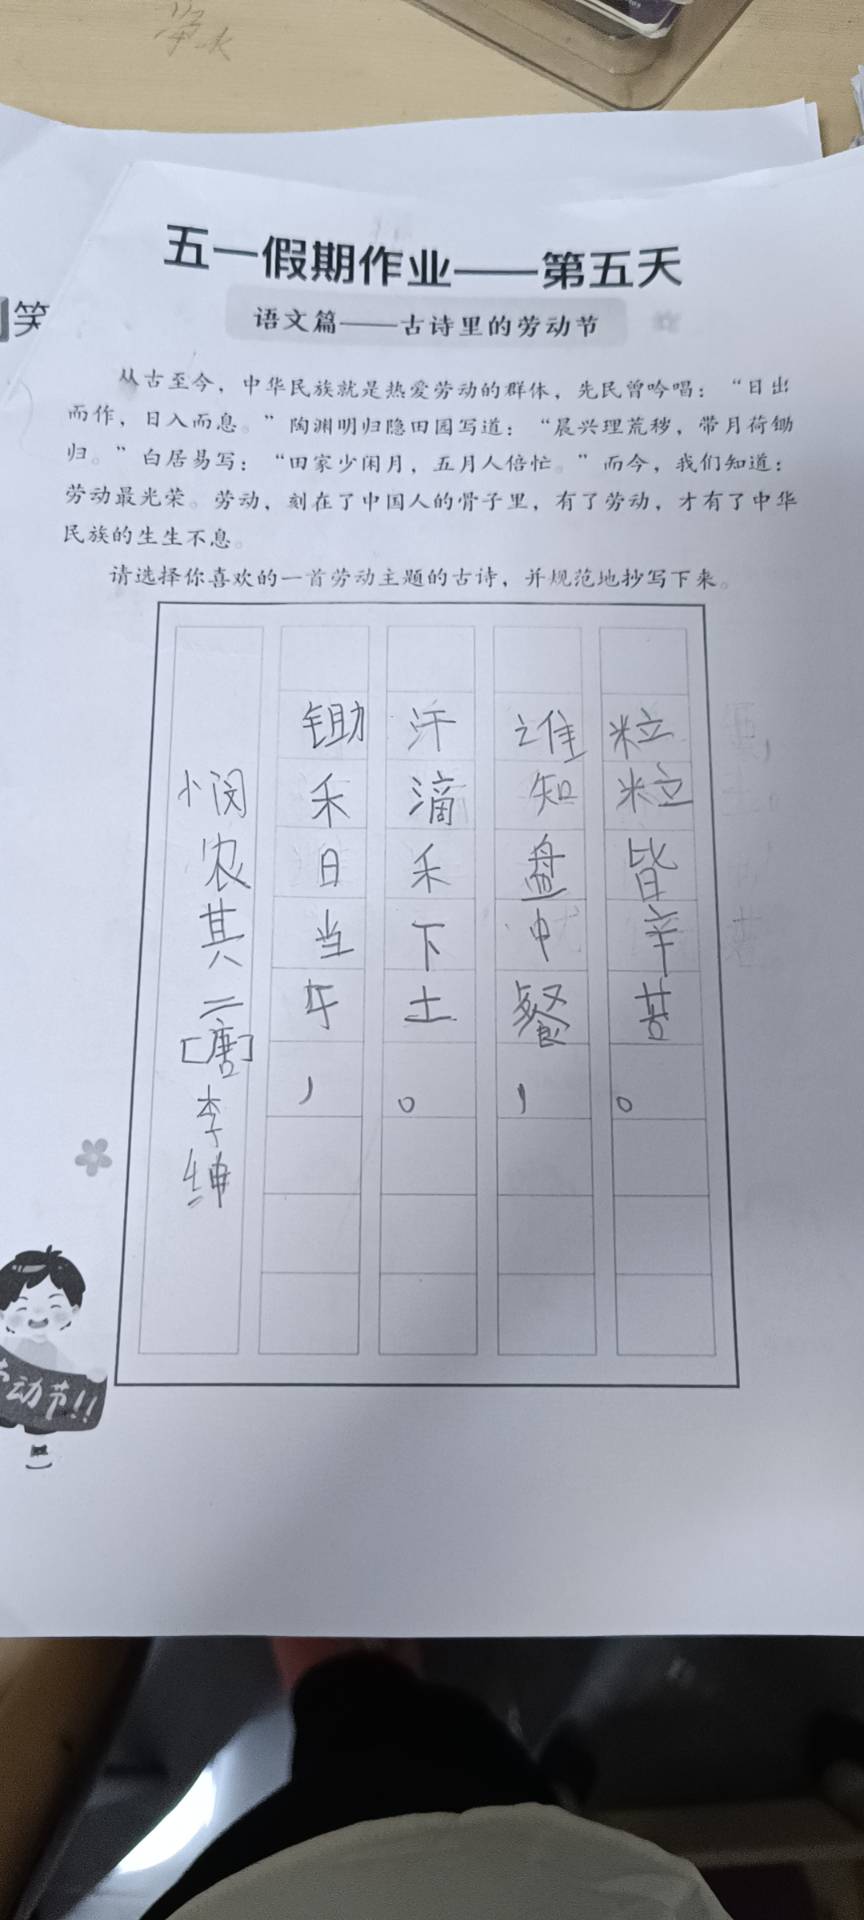 笑
五一假期作业——第五天
语文篇——古诗里的劳动节
从古至今，中华民族就是热爱劳动的群体，先民曾吟唱：“日出
而作，日入而息。”陶渊明归隐田园写道：“晨兴理荒秽，带月荷锄
归。”白居易写：“田家少闲月，五月人倍忙。”而今，我们知道：
劳动最光荣。劳动，刻在了中国人的骨子里，有了劳动，才有了中华
民族的生生不息。
请选择你喜欢的一首劳动主题的古诗，并规范地抄写下来。
悯农其二[唐]李绅
锄禾日当午，
汗滴禾下土。
谁知盘中餐，
粒粒皆辛苦。
动节!!